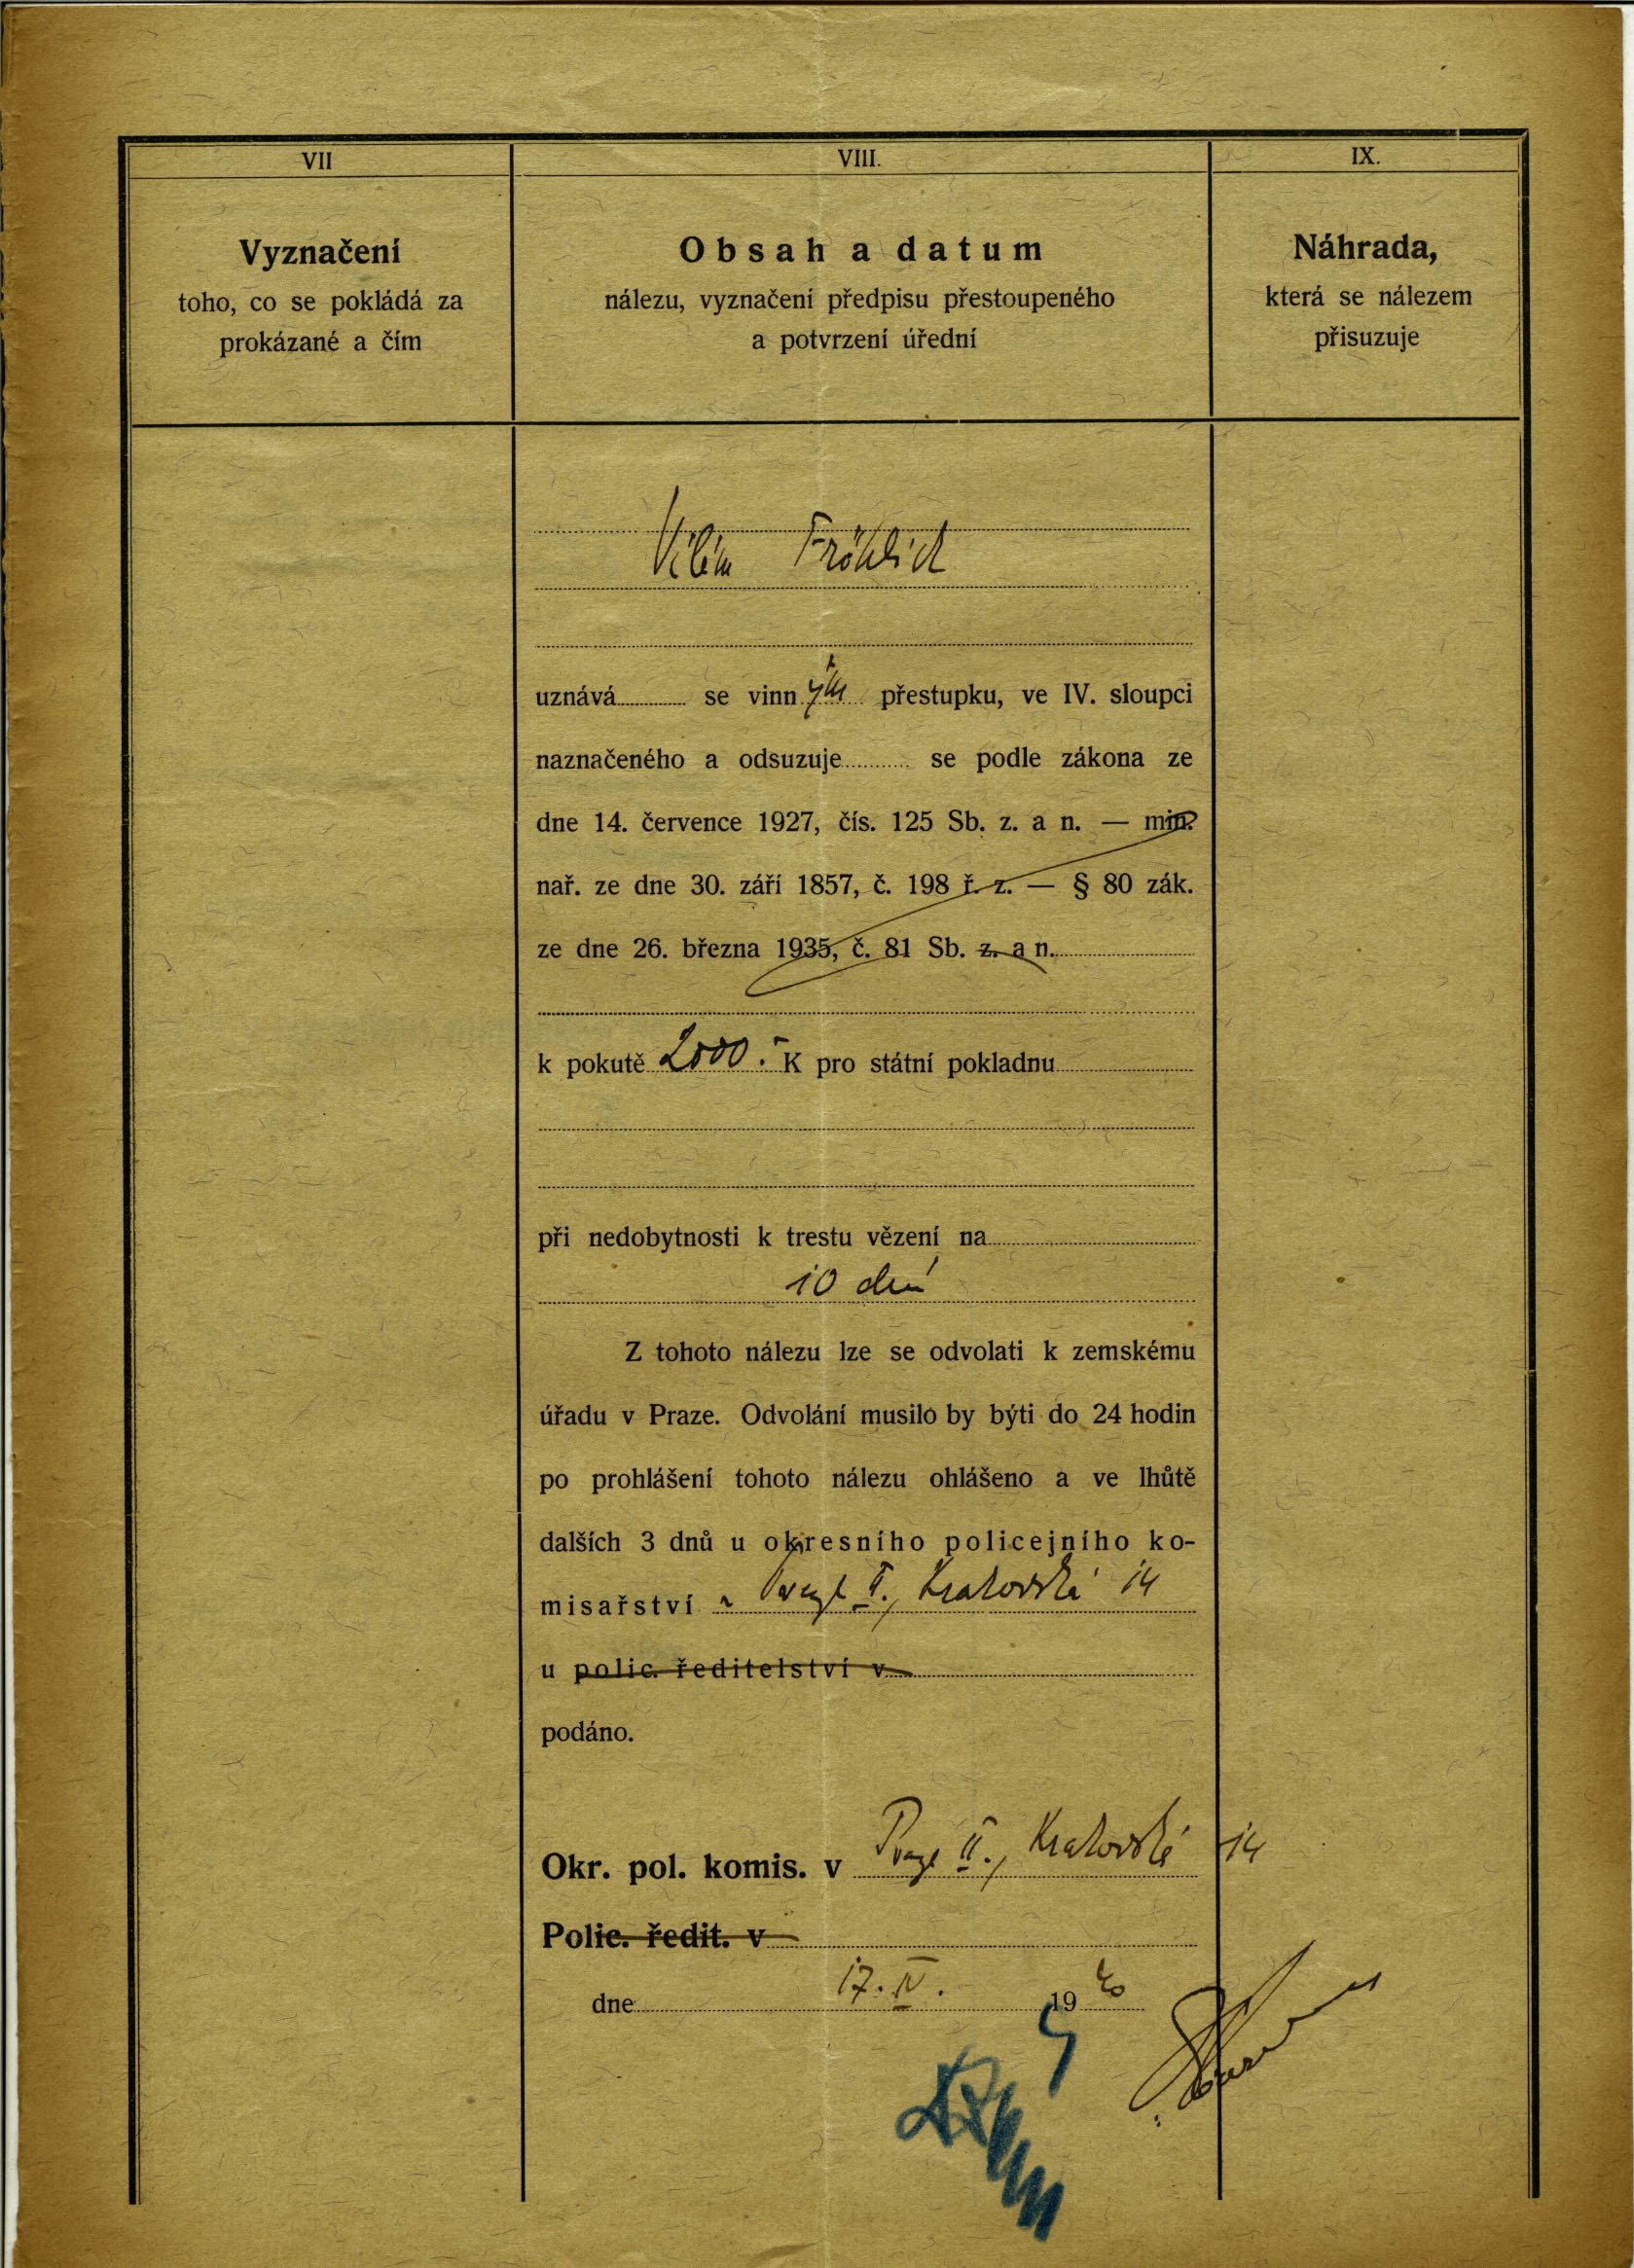 VII
VIII.
IX.
Vyznačení
toho, co se pokládá za
prokázané a čím
Obsah a datum
nálezu, vyznačení předpisu přestoupeného
a potvrzení úřední
Náhrada,
která se nálezem
přisuzuje
Vilém Fröhlich
uznává se vinným přestupku, ve IV. sloupci
naznačeného a odsuzuje se podle zákona ze
dne 14. července 1927, čís. 125 Sb. z. a n. — min.
nař. ze dne 30. září 1857, č. 198 ř. z. — § 80 zák.
ze dne 26. března 1935, č. 81 Sb. z. a n.
k pokutě 2000.- K pro státní pokladnu
při nedobytnosti k trestu vězení na
10 dní
Z tohoto nálezu lze se odvolati k zemskému
úřadu v Praze. Odvolání musilo by býti do 24 hodin
po prohlášení tohoto nálezu ohlášeno a ve lhůtě
dalších 3 dnů u okresního policejního ko-
misařství v Praze II., Krakovská 14
u polic. ředitelství v
podáno.
Okr. pol. komis. v Praze II., Krakovská 14
Polic. ředit. v
dne 17. IV. 1940